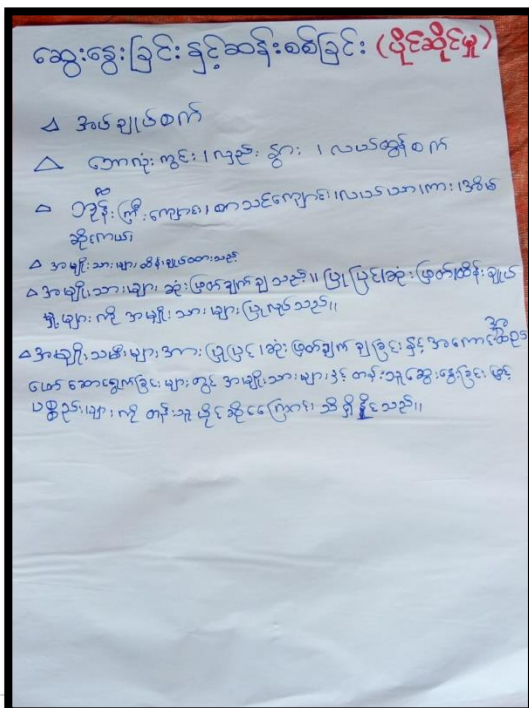 ဆွေးနွေးခြင်းနှင့်ဆန်းစစ်ခြင်း (ပိုင်ဆိုင်မှု)
△ အပ်ချုပ်စက်
△ ဘောလုံးကွင်း၊ လှည်း နွား ၊ လယ်ထွန်စက်
△ ဘုန်းကြီးကျောင်း၊ စာသင်ကျောင်း၊ လယ်ယာ၊ ကား၊ အိမ်
ဆိုင်ကယ်၊
△ အမျိုးသားများ ထိန်းချုပ်ထားသည်
△ အမျိုးသားများ ဆုံးဖြတ်ချက်ချသည်။ ပြုပြင်၊ ဆုံးဖြတ်၊ ထိန်းချုပ်
မှုများကို အမျိုးသားများပြုလုပ်သည်။
△ အမျိုးသမီးများအား ပြုပြင်၊ ဆုံးဖြတ်ချက်ချခြင်းနှင့် အကောင်အထည်
ဖော်ဆောင်ရွက်ခြင်းများတွင် အမျိုးသားများနှင့် တန်းတူဆွေးနွေးခြင်းဖြင့်
ပစ္စည်းများကို တန်းတူပိုင်ဆိုင်ကြောင်း သိရှိနိုင်သည်။